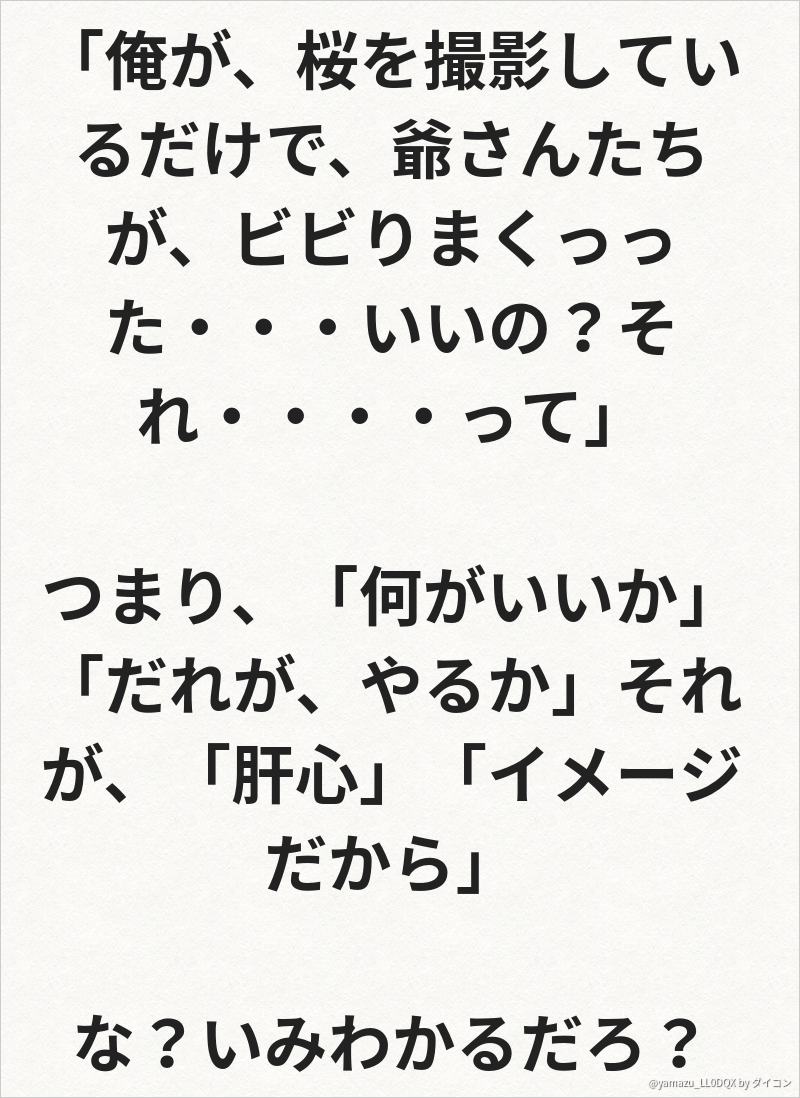 「俺が、桜を撮影してい
るだけで、爺さんたち
が、ビビりまくっっ
た・・・いいの？そ
れ・・・・って」
つまり、「何がいいか」
「だれが、やるか」それ
が、「肝心」「イメージ
だから」
な？いみわかるだろ？
@yamazu_LL0DQX by ダイコン